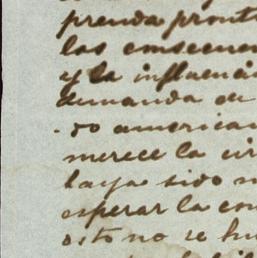 prenda pront
las consecuen
y la influencia
demanda de
do america
merece la cir
haya sido n
esperar la con
esto no se hu